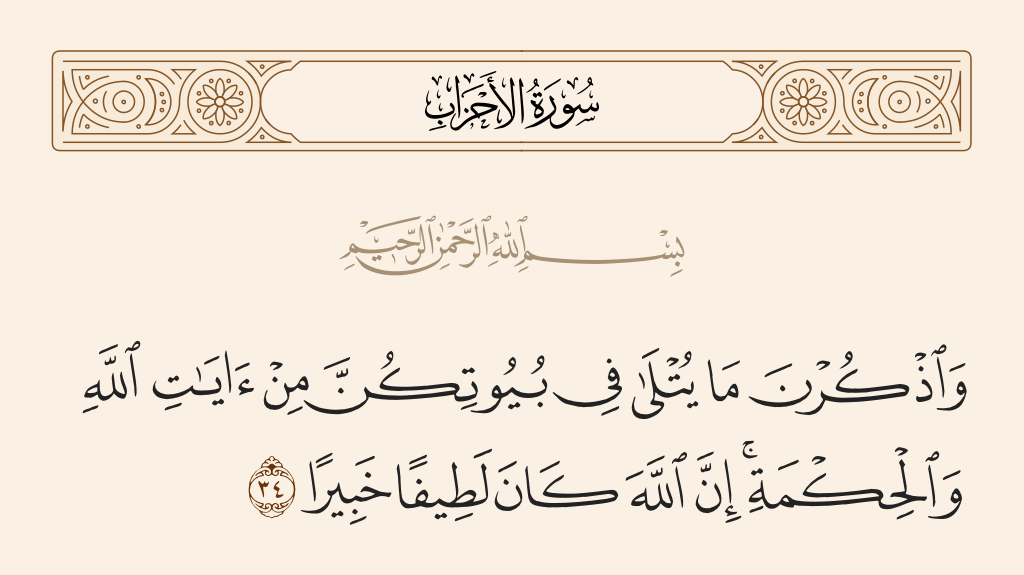 سُورَةُ الأَحْزَابِ
بِسْمِ ٱللَّهِ ٱلرَّحْمَٰنِ ٱلرَّحِيمِ
وَٱذْكُرْنَ مَا يُتْلَىٰ فِى بُيُوتِكُنَّ مِنْ ءَايَـٰتِ ٱللَّهِ
وَٱلْحِكْمَةِ ۚ إِنَّ ٱللَّهَ كَانَ لَطِيفًا خَبِيرًا ٣٤